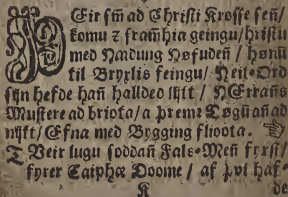 ÞEir sm̃ ad Christi Krosse señ/
komu ⁊ fram̃hia geingu/ hristu
med Naduung Høfuden̄/ høn̄u
til Bryxlis feingu/ Neit Ord
sijn hefde han̄ hallded slijt /
Mustere ad briota/ a þremr Døgū an̄ ad
nijtt/ Efna med Bygging flioota. ☞
Tveir lugu soddan̄ Fals-Men̄ fyrst/
fyrer Caiphæ Doome / af þvi haf-
K de